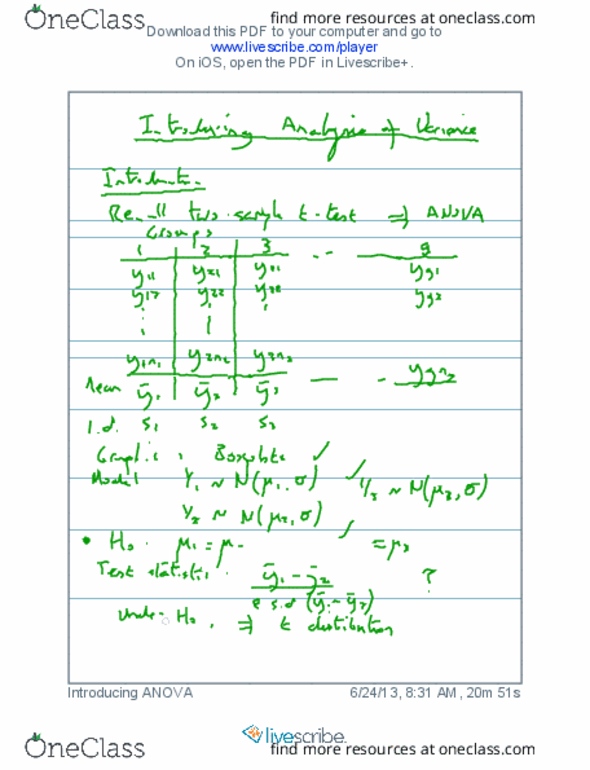 OneClass find more resources at oneclass.com
Download this PDF to your computer and go to
www.livescribe.com/player
On iOS, open the PDF in Livescribe+.
Introducing Analysis of Variance
Introduction
Recall two-sample t-test ⇒ ANOVA
Groups
1 2 3 ... g
y11 y21 y31 yg1
y12 y22 y32 yg2
y1n1 y2n2 y3n3 — - ygn
Mean ȳ1 ȳ2 ȳ3
s.d. s1 s2 s3
Graphic: Boxplots ✓
Model Y1 ~ N(μ1, σ) ✓ Y3 ~ N(μ3, σ)
Y2 ~ N(μ2, σ) ✓
• H0: μ1 = μ2 = μ3
Test statistic: ȳ1 - ȳ2 ?
e.s.d (ȳ1 - ȳ2)
Under H0, ⇒ t distribution
Introducing ANOVA 6/24/13, 8:31 AM, 20m 51s
livescribe.
OneClass find more resources at oneclass.com